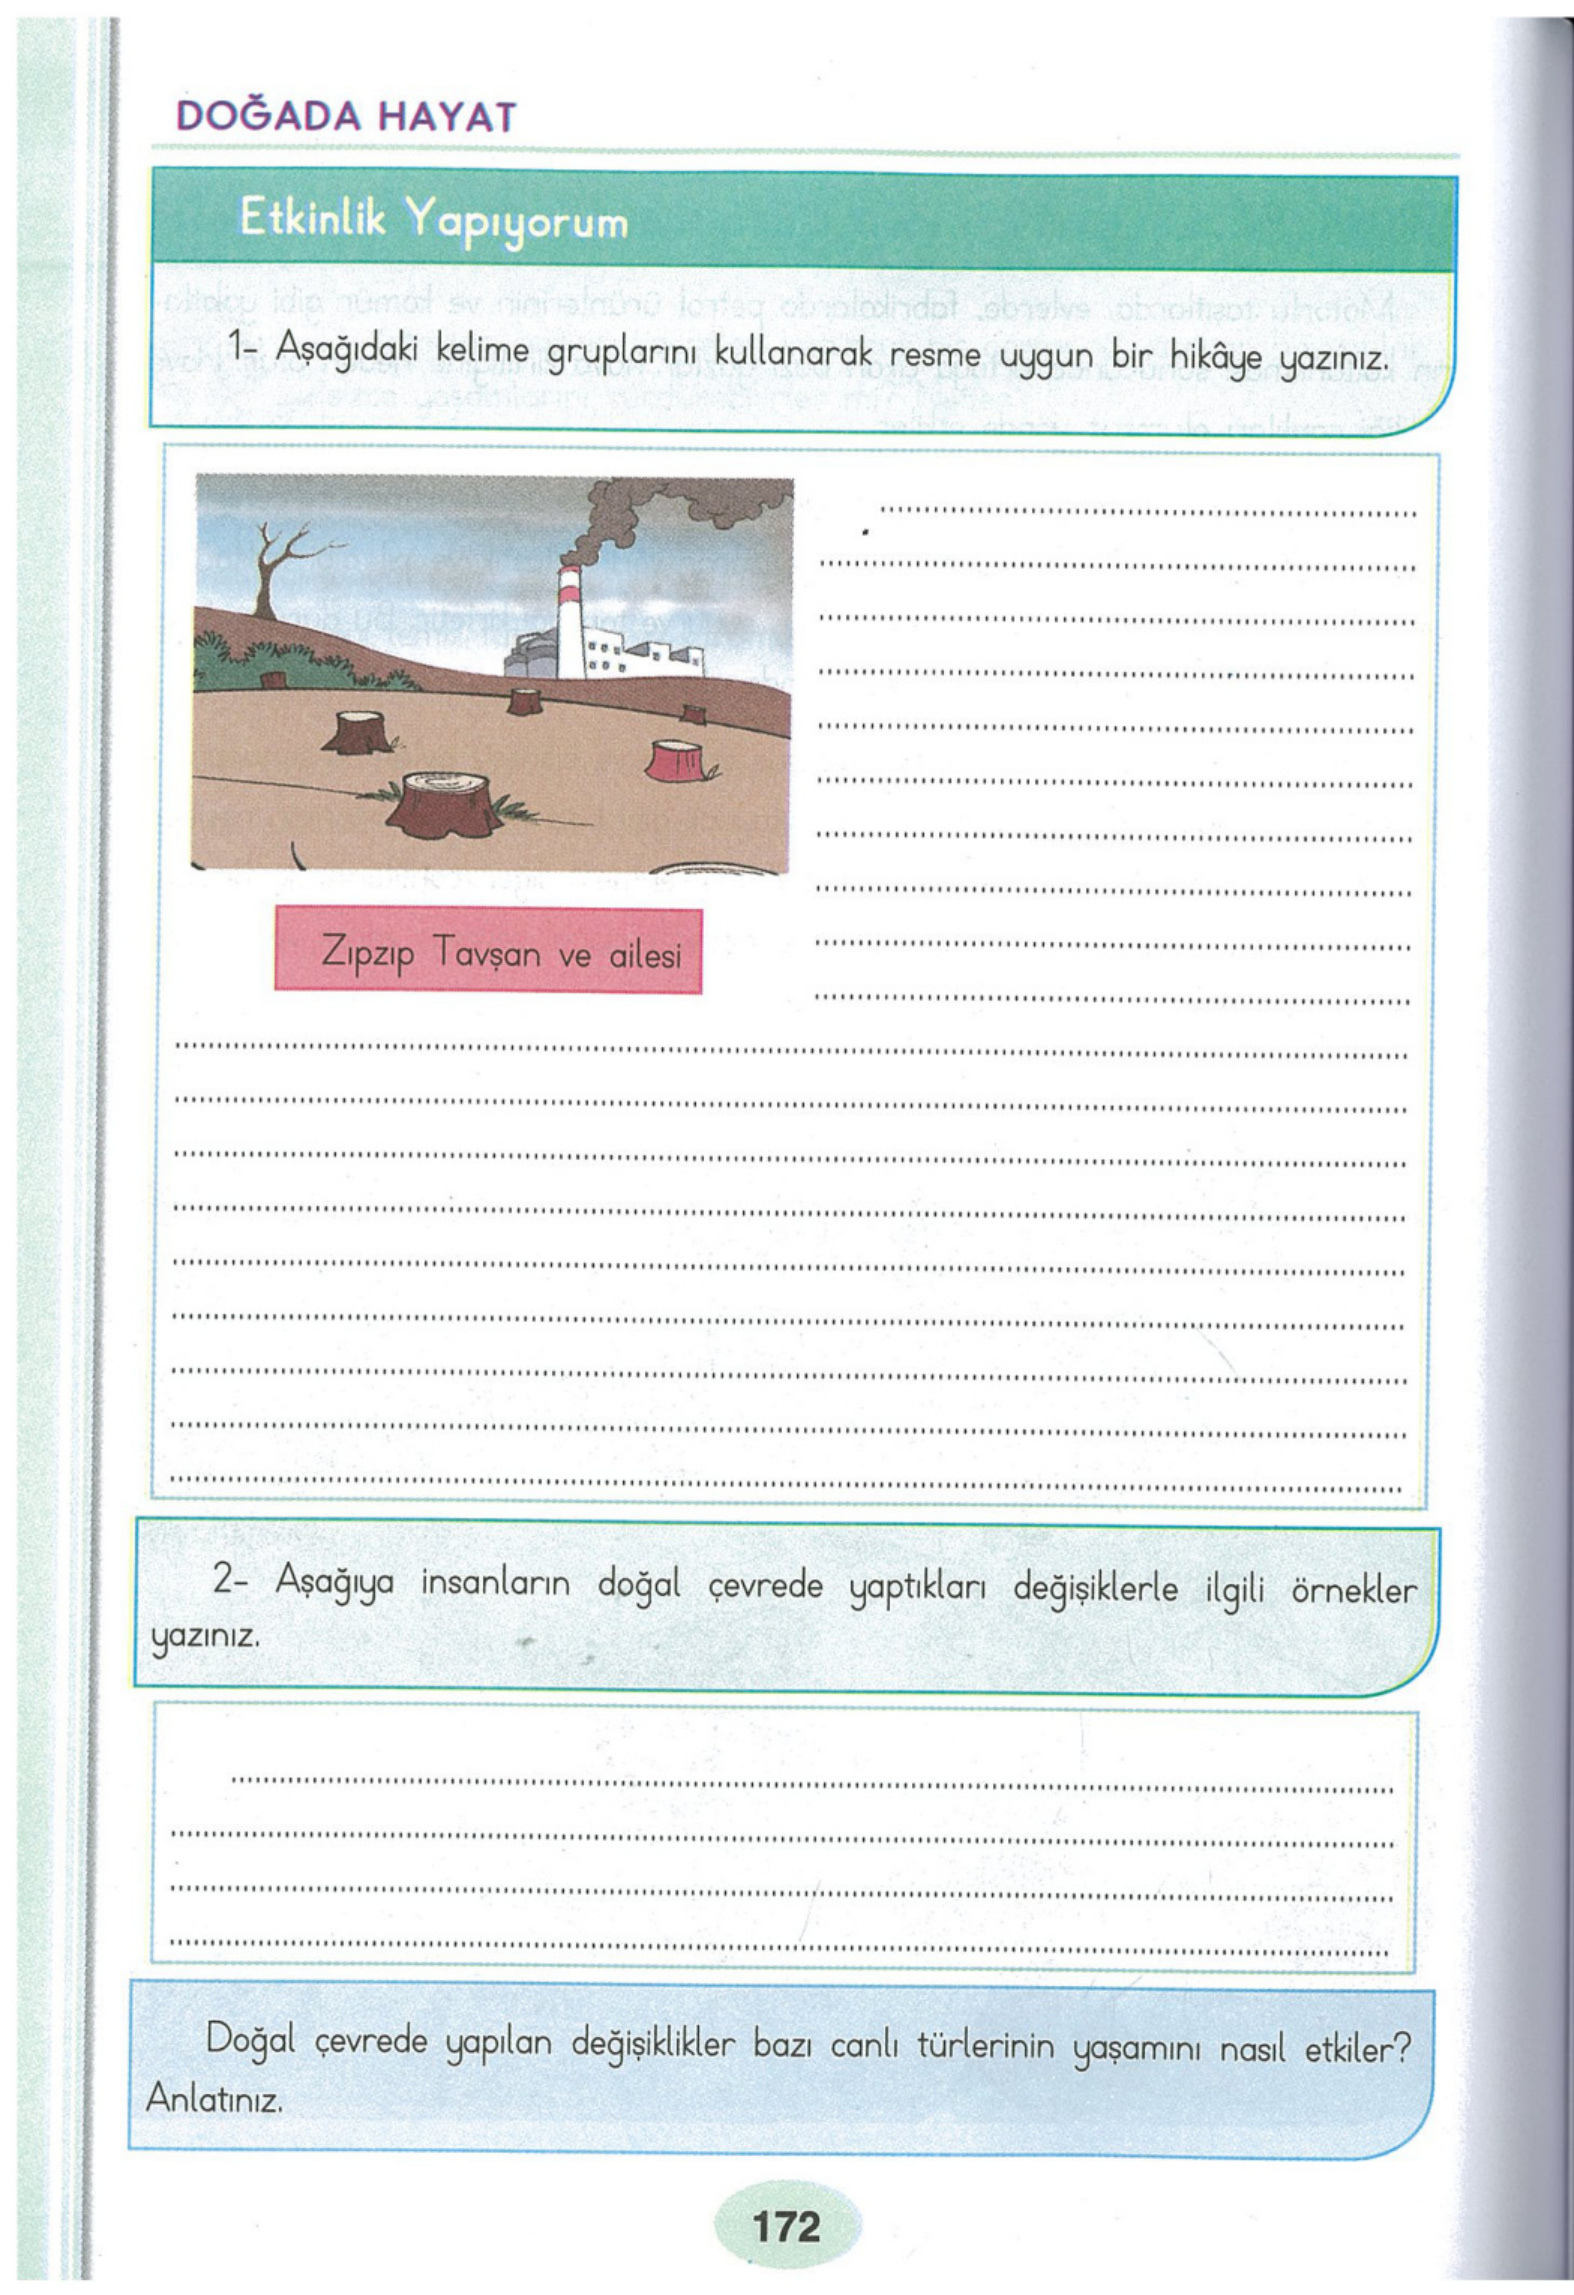 DOĞADA HAYAT
Etkinlik Yapıyorum
1- Aşağıdaki kelime gruplarını kullanarak resme uygun bir hikâye yazınız.
Zıpzıp Tavşan ve ailesi
2- Aşağıya insanların doğal çevrede yaptıkları değişiklerle ilgili örnekler
yazınız.
Doğal çevrede yapılan değişiklikler bazı canlı türlerinin yaşamını nasıl etkiler?
Anlatınız.
172